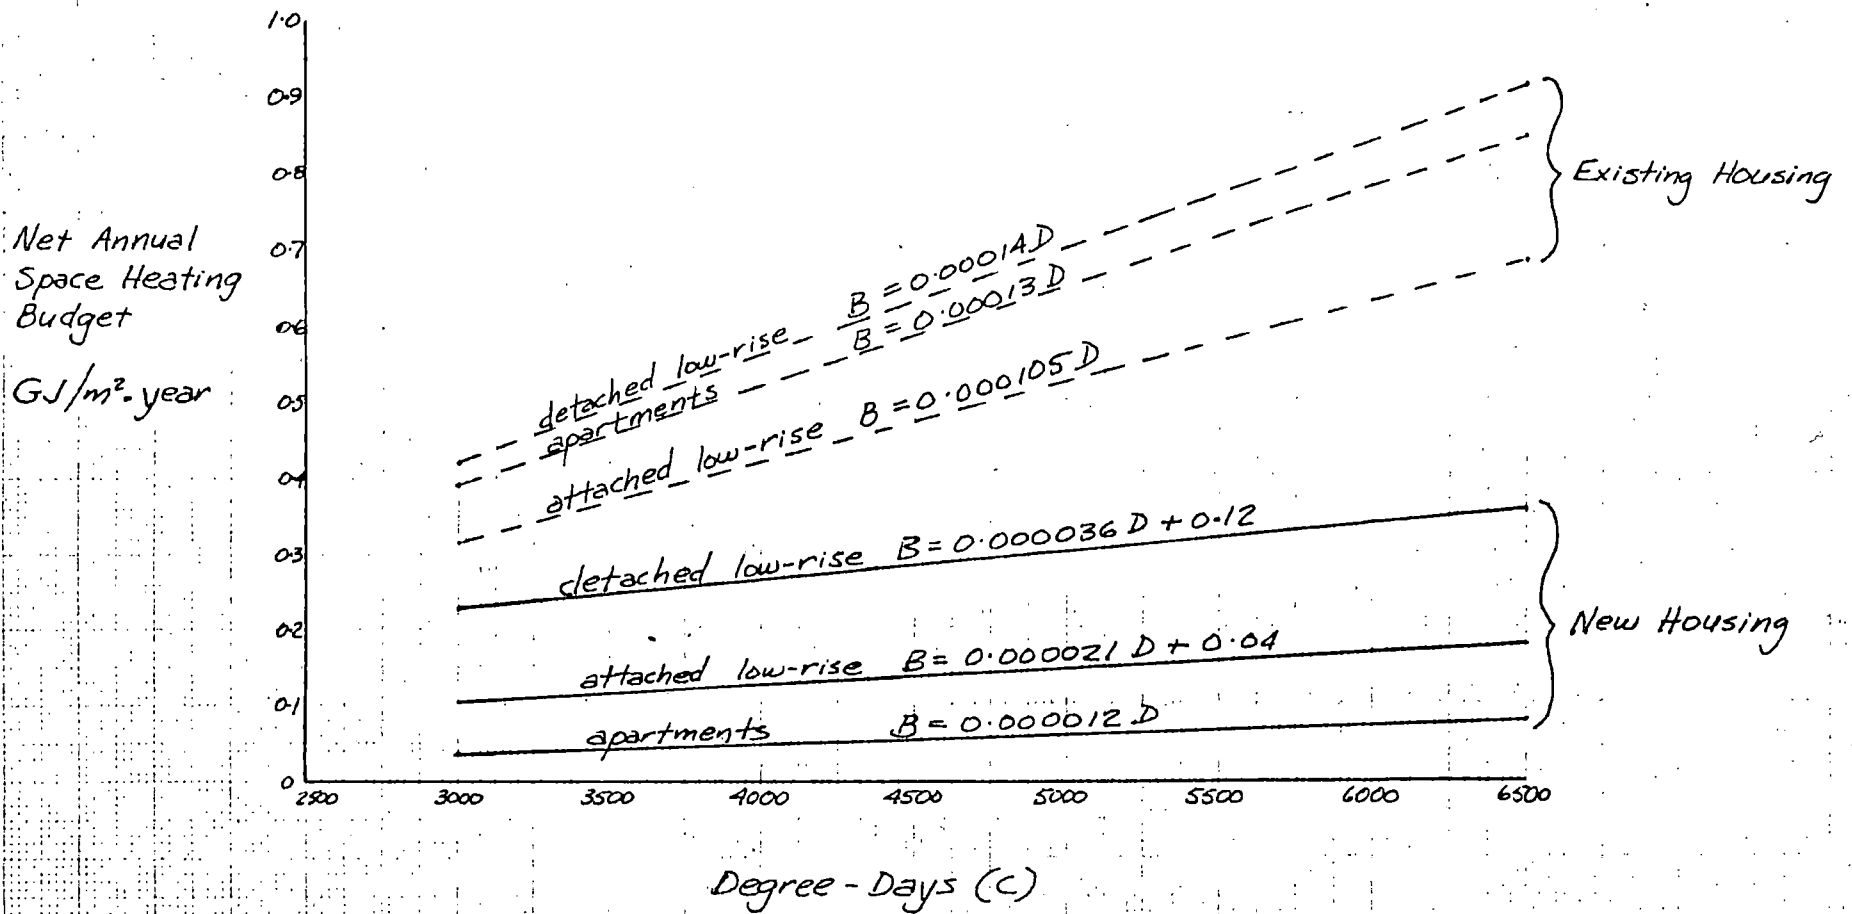 1.0
0.9
0.8
0.7
0.6
0.5
0.4
0.3
0.2
0.1
0
Net Annual
Space Heating
Budget
GJ/m².year
detached low-rise B = 0.00014 D
apartments B = 0.00013 D
attached low-rise B = 0.000105 D
Existing Housing
detached low-rise B = 0.000036 D + 0.12
attached low-rise B = 0.000021 D + 0.04
apartments B = 0.000012 D
New Housing
2500 3000 3500 4000 4500 5000 5500 6000 6500
Degree-Days (C)